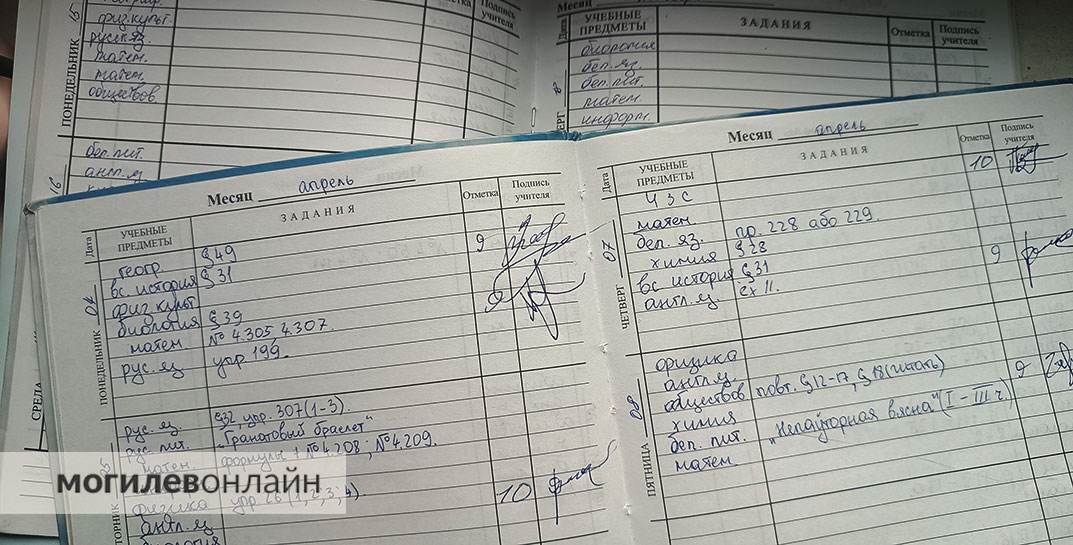 15
ПОНЕДЕЛЬНИК
физ.культ.
русск.яз.
матем.
матем.
обществов.
16
бел.лит.
англ.яз
СРЕДА
Подпись учителя
Месяц
УЧЕБНЫЕ ПРЕДМЕТЫ
ЗАДАНИЯ
Отметка
Подпись учителя
биология
бел.яз.
бел.лит.
матем.
информ.
Месяц апрель
Дата
УЧЕБНЫЕ ПРЕДМЕТЫ
ЗАДАНИЯ
Отметка
Подпись учителя
04
ПОНЕДЕЛЬНИК
геогр §49 9
вс. история §31
физ культ 9
биология §39
матем № 4.305, 4.307.
рус. яз упр 199.
рус. яз. §32, упр. 307(1-3).
рус. лит. „Гранатовый браслет"
матем формулы 1 №4.208, №4.209.
физика упр 26 (1,2,3,4). 10
англ. яз
биология
Месяц апрель
Дата
УЧЕБНЫЕ ПРЕДМЕТЫ
ЗАДАНИЯ
Отметка
Подпись учителя
07
ЧЕТВЕРГ
ЧЗС 10
матем
бел. яз. пр. 228 або 229
химия §28
вс история §31 9
англ. яз ex 11.
08
ПЯТНИЦА
физика
англ.яз.
обществов повт. §12-17, §18(читать) 9
химия
бел. лит. „Непаўторная вясна" (I - III ч.)
матем
могилевонлайн